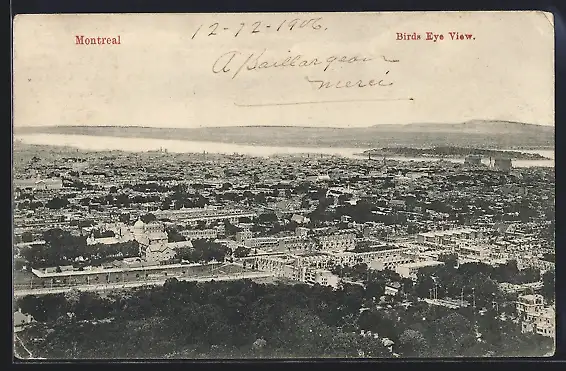 12-12-1906.
Montreal
Birds Eye View.
A Baillargeon
merci